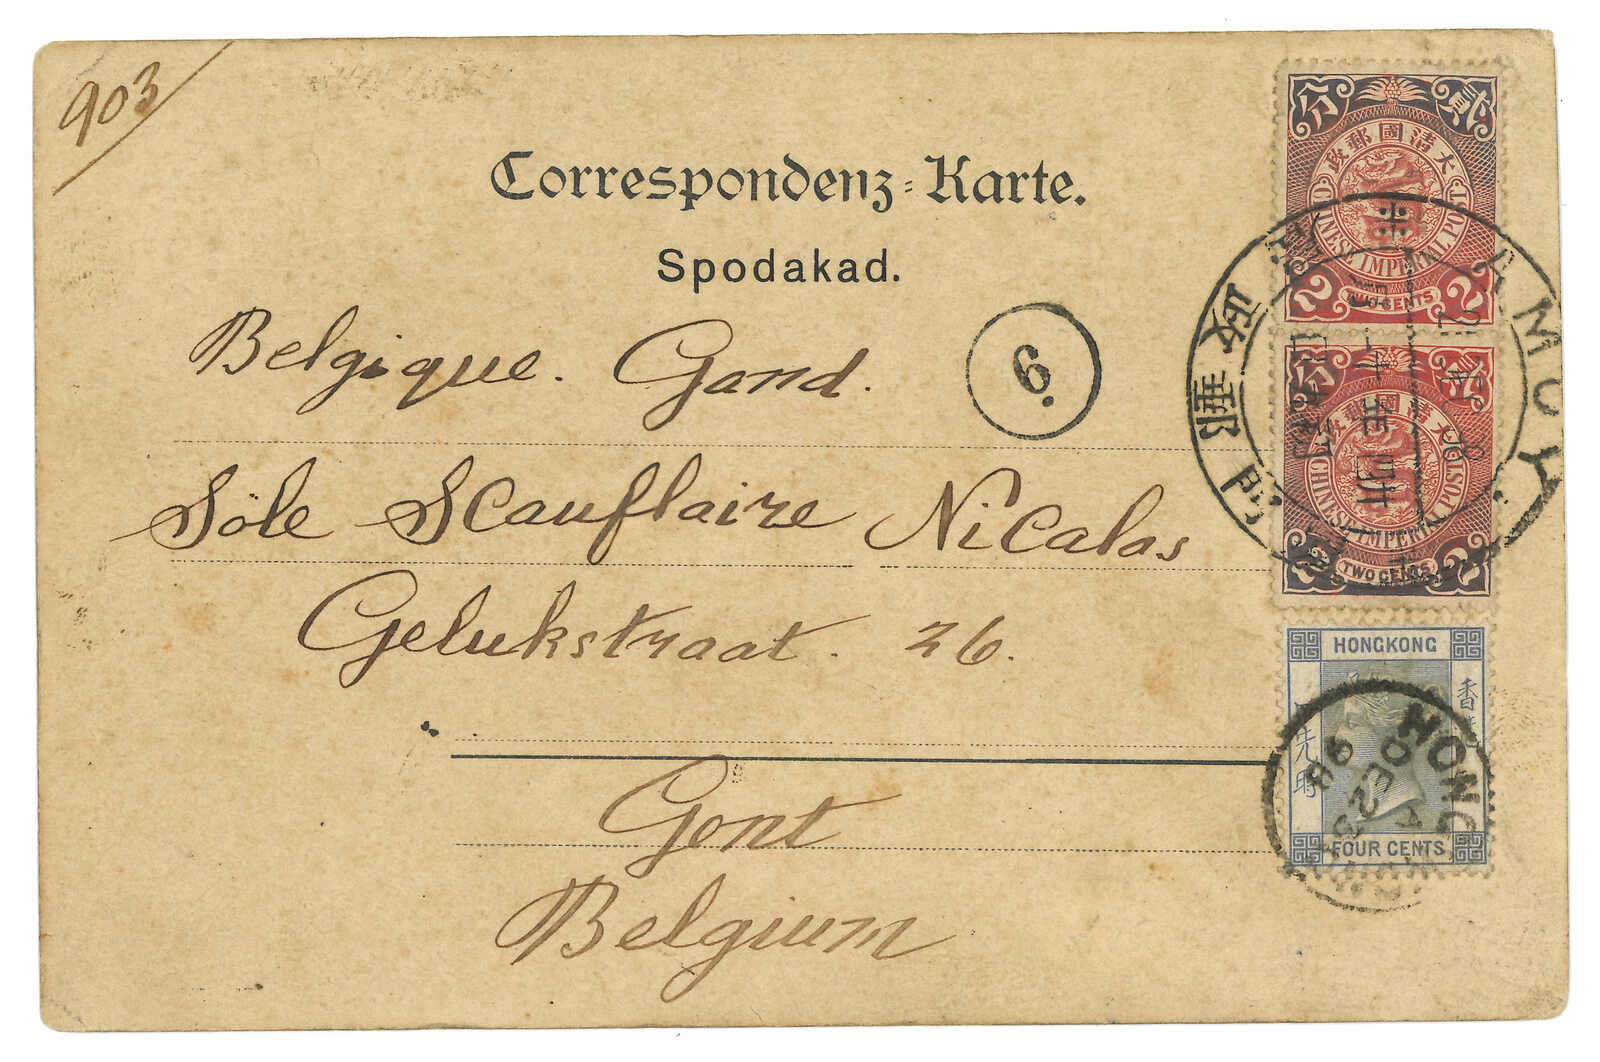 903
Correspondenz-Karte.
Spodakad.
Belgique. Gand.
6.
Sole Scauflaire Nicolas
Gelukstraat. 26.
Gont
Belgium
分 貳
大清國郵政
CHINESE IMPERIAL POST
2 TWO CENTS 2
分 貳
大清國郵政
CHINESE IMPERIAL POST
2 TWO CENTS 2
AMOY
郵政
HONGKONG
香港
先時
FOUR CENTS
HONG
DE 2
98